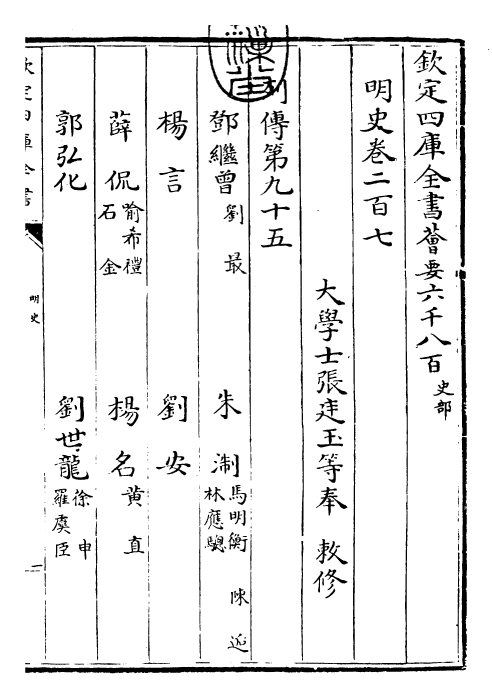 欽定四庫全書薈要六千八百 史部
明史卷二百七
大學士張廷玉等奉 敕修
列傳第九十五
鄧繼曾 劉最 朱淛 馬明衡 陳逅 林應驄
楊言 劉安
薛侃 喻希禮 石金 楊名 黄直
郭弘化 劉世龍 徐申 羅虞臣
欽定四庫全書
明史
一